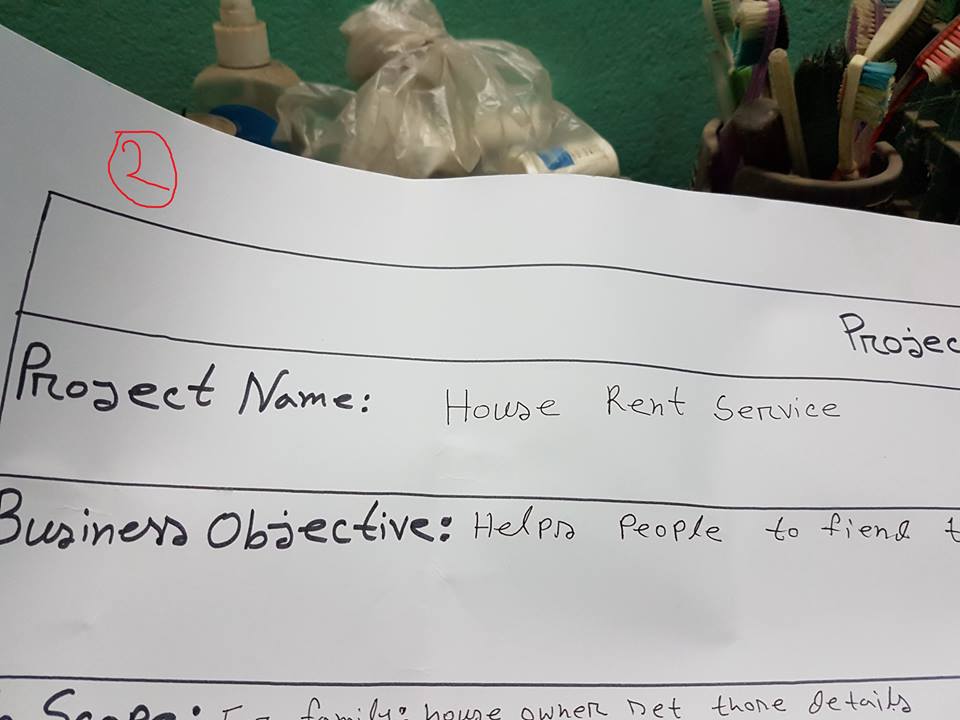 2
Projec
Project Name: House Rent Service
Business Objective: Helps People to fiend t
Scope: family: house owner set those details